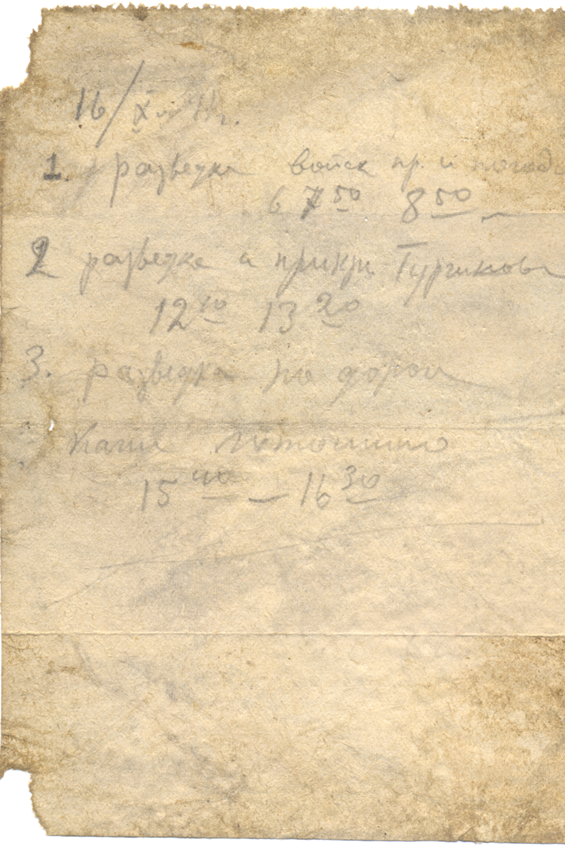 16/X
1. разведка войск пр. и погоды
6 7⁵⁰ 8⁵⁰
2 разведка и прикр. Тургиново
12¹⁰ 13²⁰
3. разведка по дороге
15⁴⁰ — 16³⁰